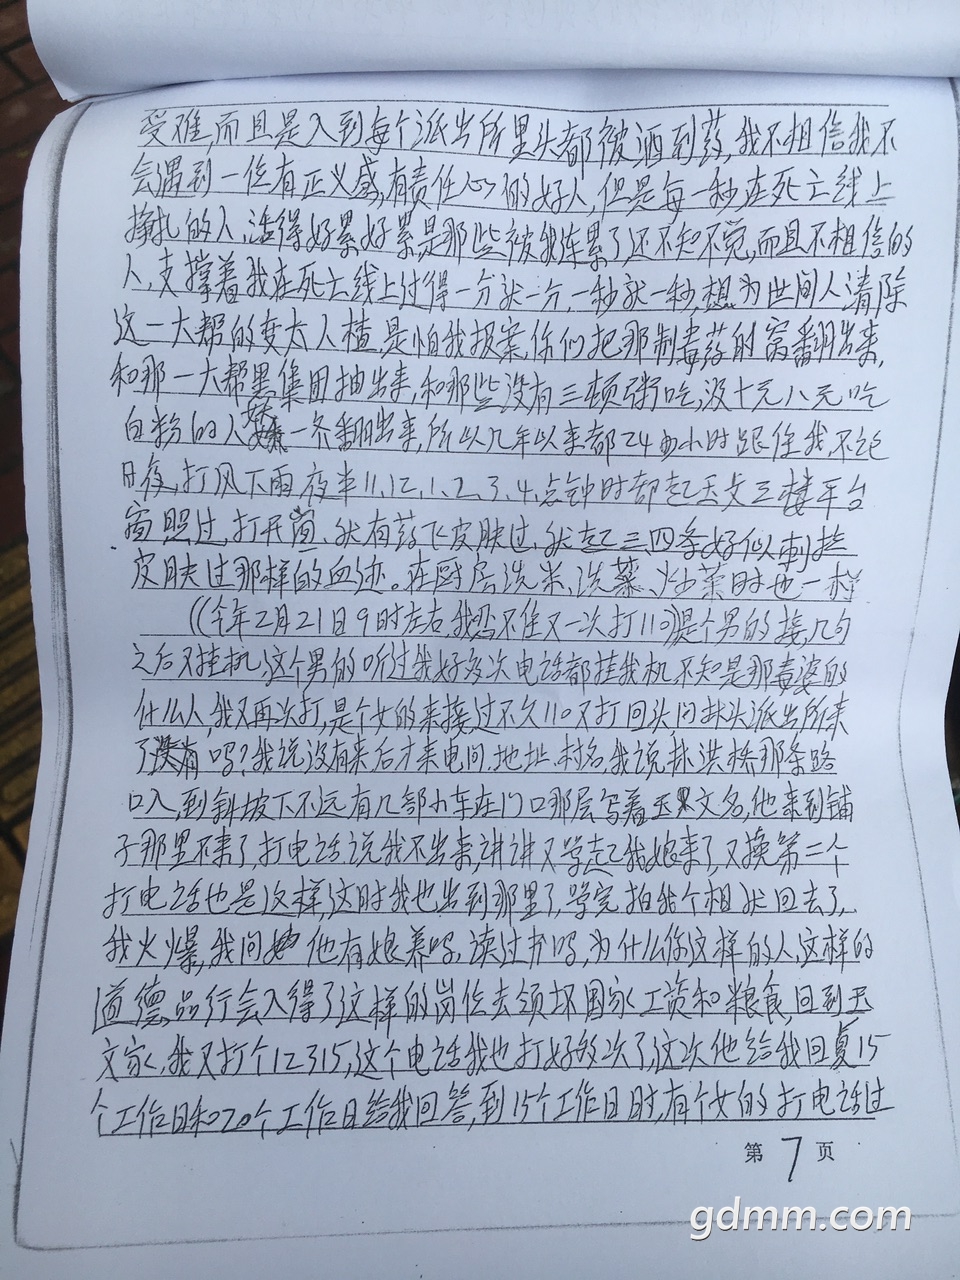 受难,而且是入到每个派出所里头都被洒到药,我不相信我不
会遇到一位有正义感,有责任心的好人,但是每一秒在死亡线上
挣扎的人,活得好累好累,是那些被我连累了还不知不觉,而且不相信的
人,支撑着我在死亡线上过得一分就一分,一秒就一秒,想为世间人清除
这一大帮的变太人楂,是怕我报案,你们把那制毒药的窝翻出来,
和那一大帮黑集团抽出来,和那些没有三顿粥吃,没十元八元吃
白粉的人一齐翻出来,所以几年以来都24小时跟住我,不论
日夜,打风下雨,夜半11、12、1、2、3、4、点钟时都起玉文三楼平台
窗照过,打开窗、就有药飞皮肤过,就起三四条好似刺挂
皮肤过那样的血迹。在厨房洗米、洗菜、炒菜时也一样
((今年2月21日9时左右,我忍不住又一次打110)是个男的接,几句
之后又挂机,这个男的听过我好多次电话都挂我机,不知是那毒婆的
什么人,我又再次打,是个女的来接,过不久110又打回头问林头派出所来
了没有吗?我说没有来后才来电问,地址、村名,我说林洪桥那条路
口入,到斜坡下不远有几部小车在门口那层写着玉文名,他来到铺
子那里不来了,打电话说我不出来,讲讲又学起我娘来了,又换第二个
打电话也是这样,这时我也出到那里了,学完拍我个相就回去了,
我火爆,我问他有娘养吗,读过书吗,为什么你这样的人,这样的
道德品行会入得了这样的岗位去领坏国家工资和粮食,回到玉
文家,我又打个12315,这个电话我也打好多次了,这次他给我回复15
个工作日和20个工作日给我回答,到15个工作日时,有个女的打电话过
第7页
gdmm.com